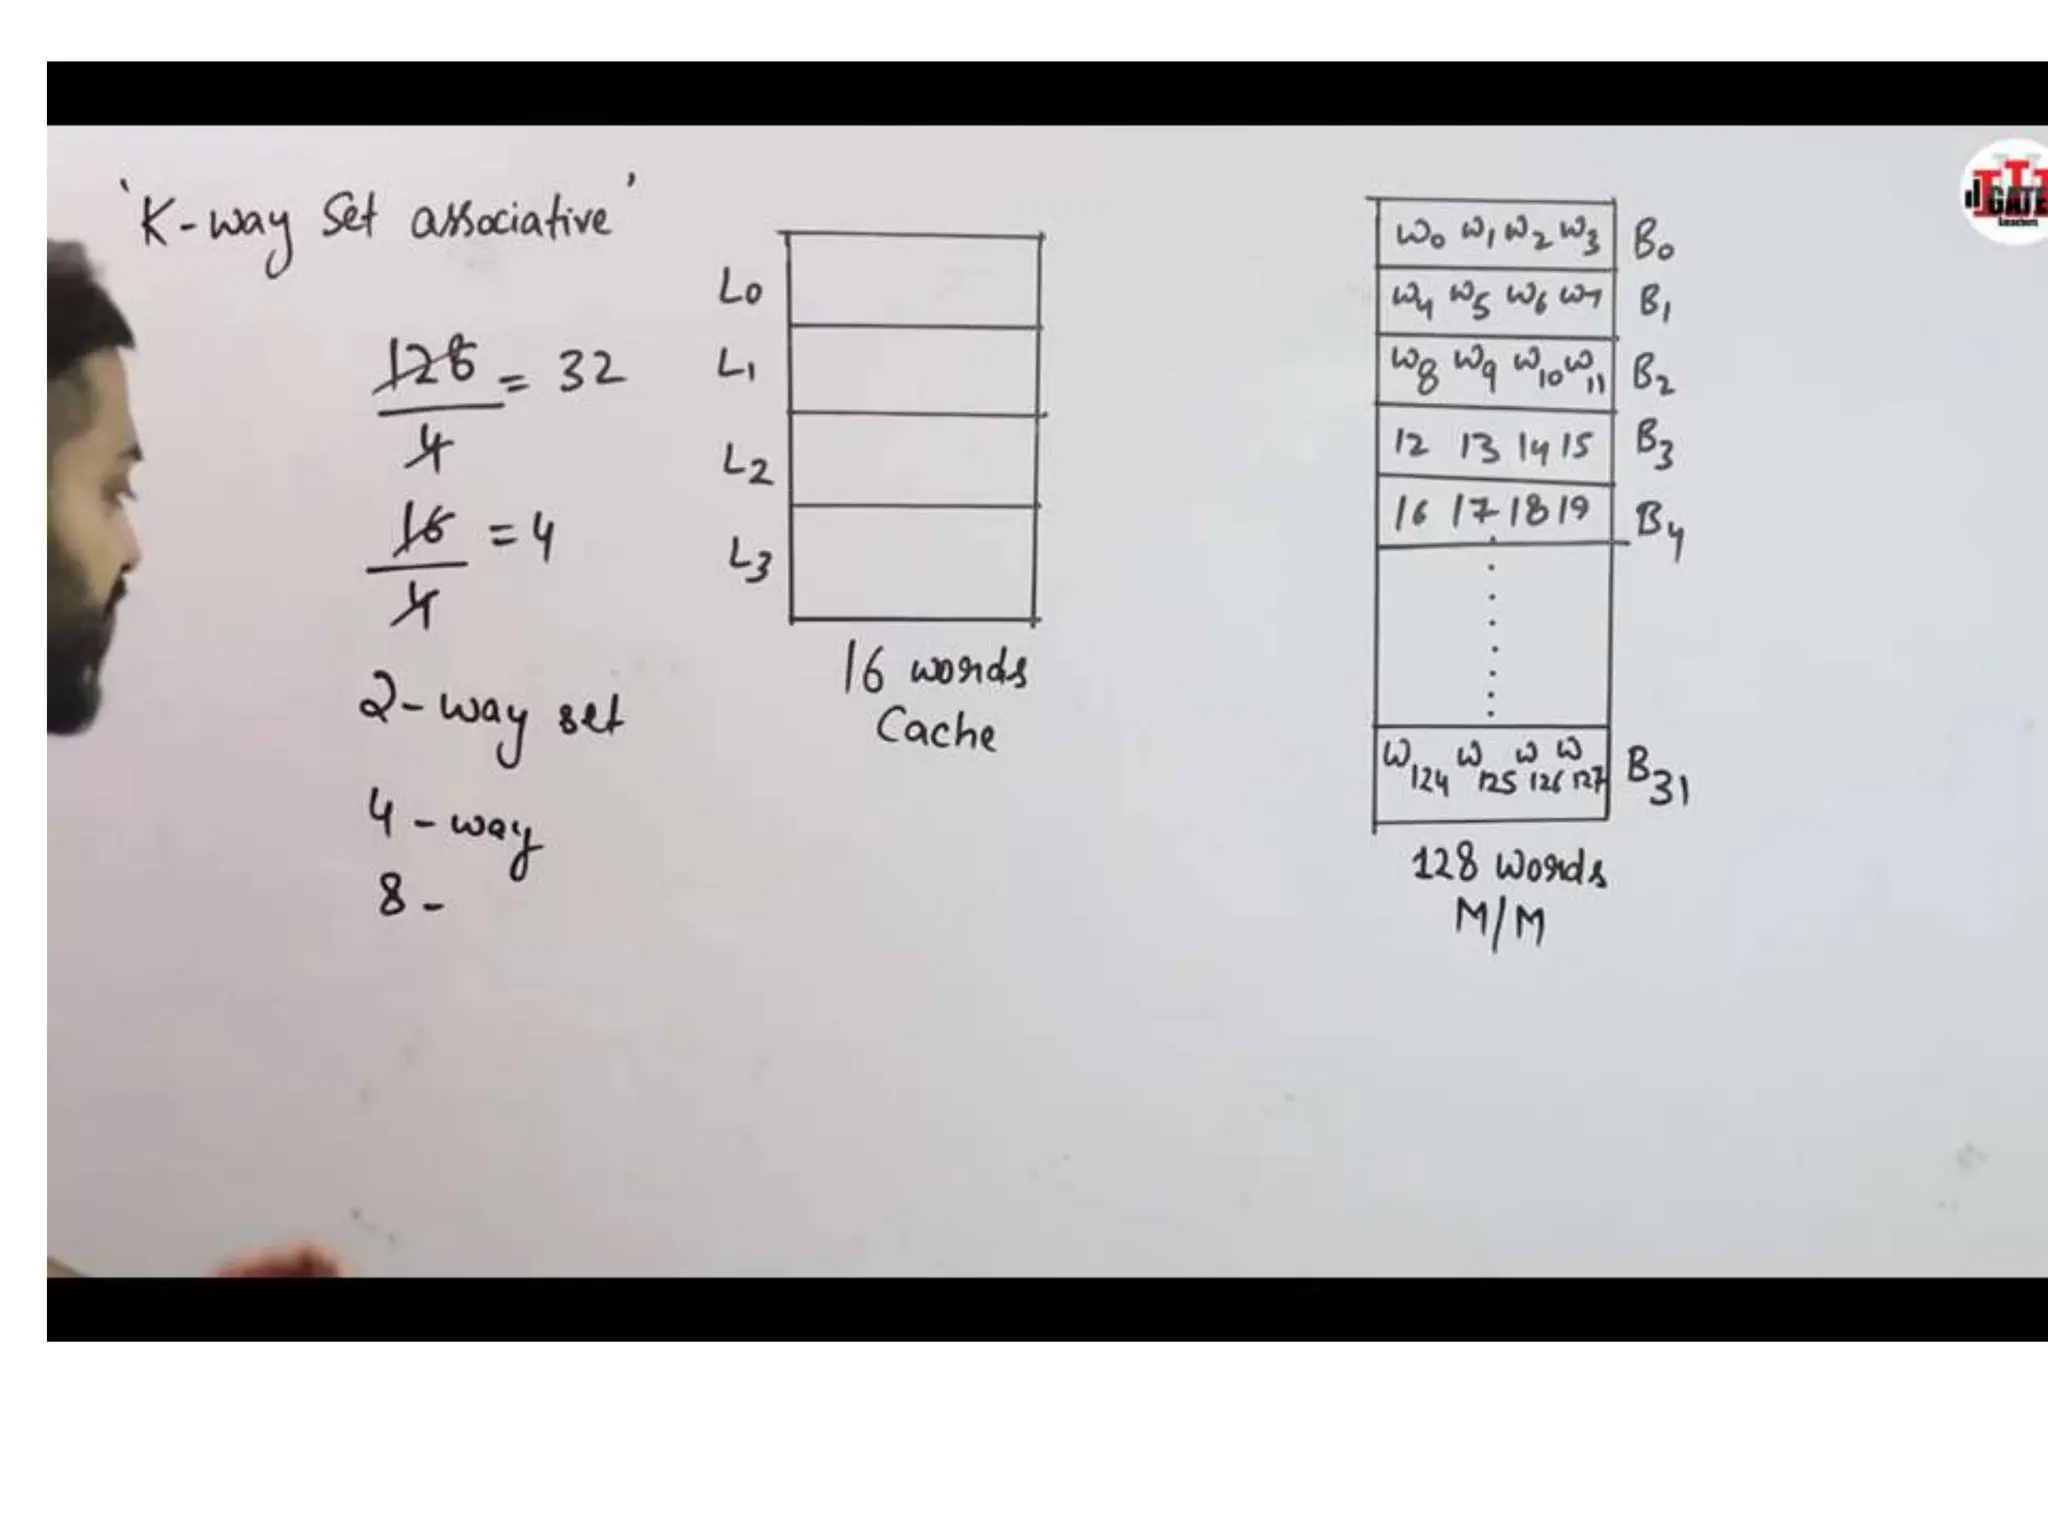 'K-way Set associative'
128
4
= 32
16
4
= 4
2-way set
4-way
8-
L0
L1
L2
L3
16 words
Cache
W0 W1 W2 W3 B0
W4 W5 W6 W7 B1
W8 W9 W10 W11 B2
12 13 14 15 B3
16 17 18 19 B4
W124 W125 W126 W127 B31
128 words
M/M
GATE